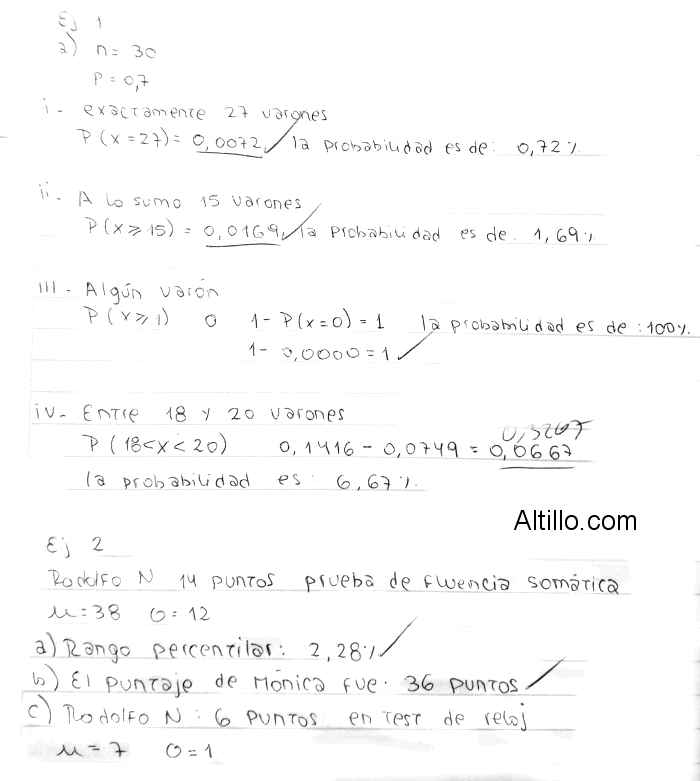 Ej 1
a) n = 30
P = 0,7
i- exactamente 27 varones
P(x=27) = 0,0072 la probabilidad es de: 0,72%
ii- A lo sumo 15 varones
P(x≥15) = 0,0169 la probabilidad es de. 1,69%
iii- Algún varón
P(x≥1) o 1-P(x=0) = 1 la probabilidad es de: 100%
1- 0,0000 = 1
iv- Entre 18 y 20 varones
0,3207
P(18<x<20) 0,1416 - 0,0749 = 0,0667
la probabilidad es: 6,67%.
Altillo.com
Ej 2
Rodolfo N 14 puntos prueba de fluencia somática
μ=38 σ=12
a) Rango percentilar: 2,28%
b) El puntaje de Mónica fue. 36 puntos
c) Rodolfo N: 6 puntos en test de reloj
μ=7 σ=1